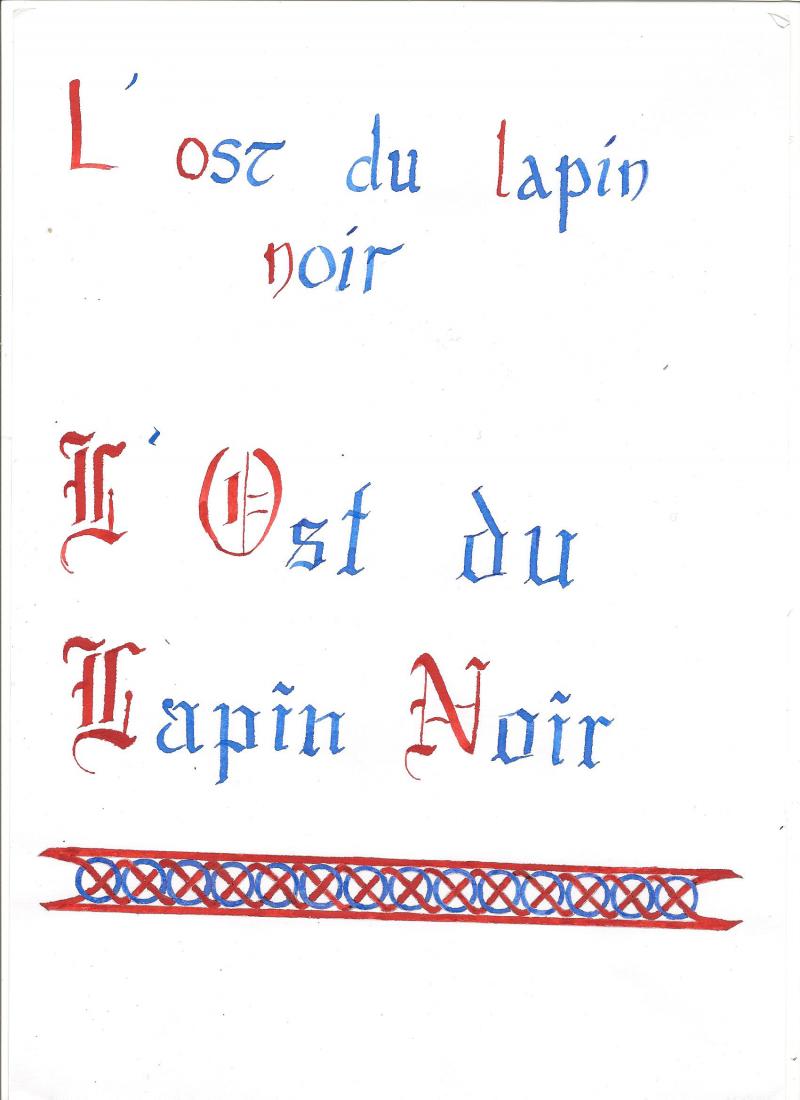 L'ost du lapin
noir
L'Ost du
Lapin Noir